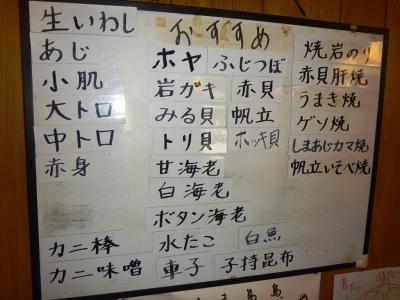 おすすめ
生いわし
あじ
小肌
大トロ
中トロ
赤身
カニ棒
カニ味噌
ホヤ ふじつぼ
岩ガキ 赤貝
みる貝 帆立
トリ貝 ホッキ貝
甘海老
白海老
ボタン海老
水たこ 白魚
車子 子持昆布
焼岩のり
赤貝肝焼
うまき焼
ゲソ焼
しまあじカマ焼
帆立いそべ焼